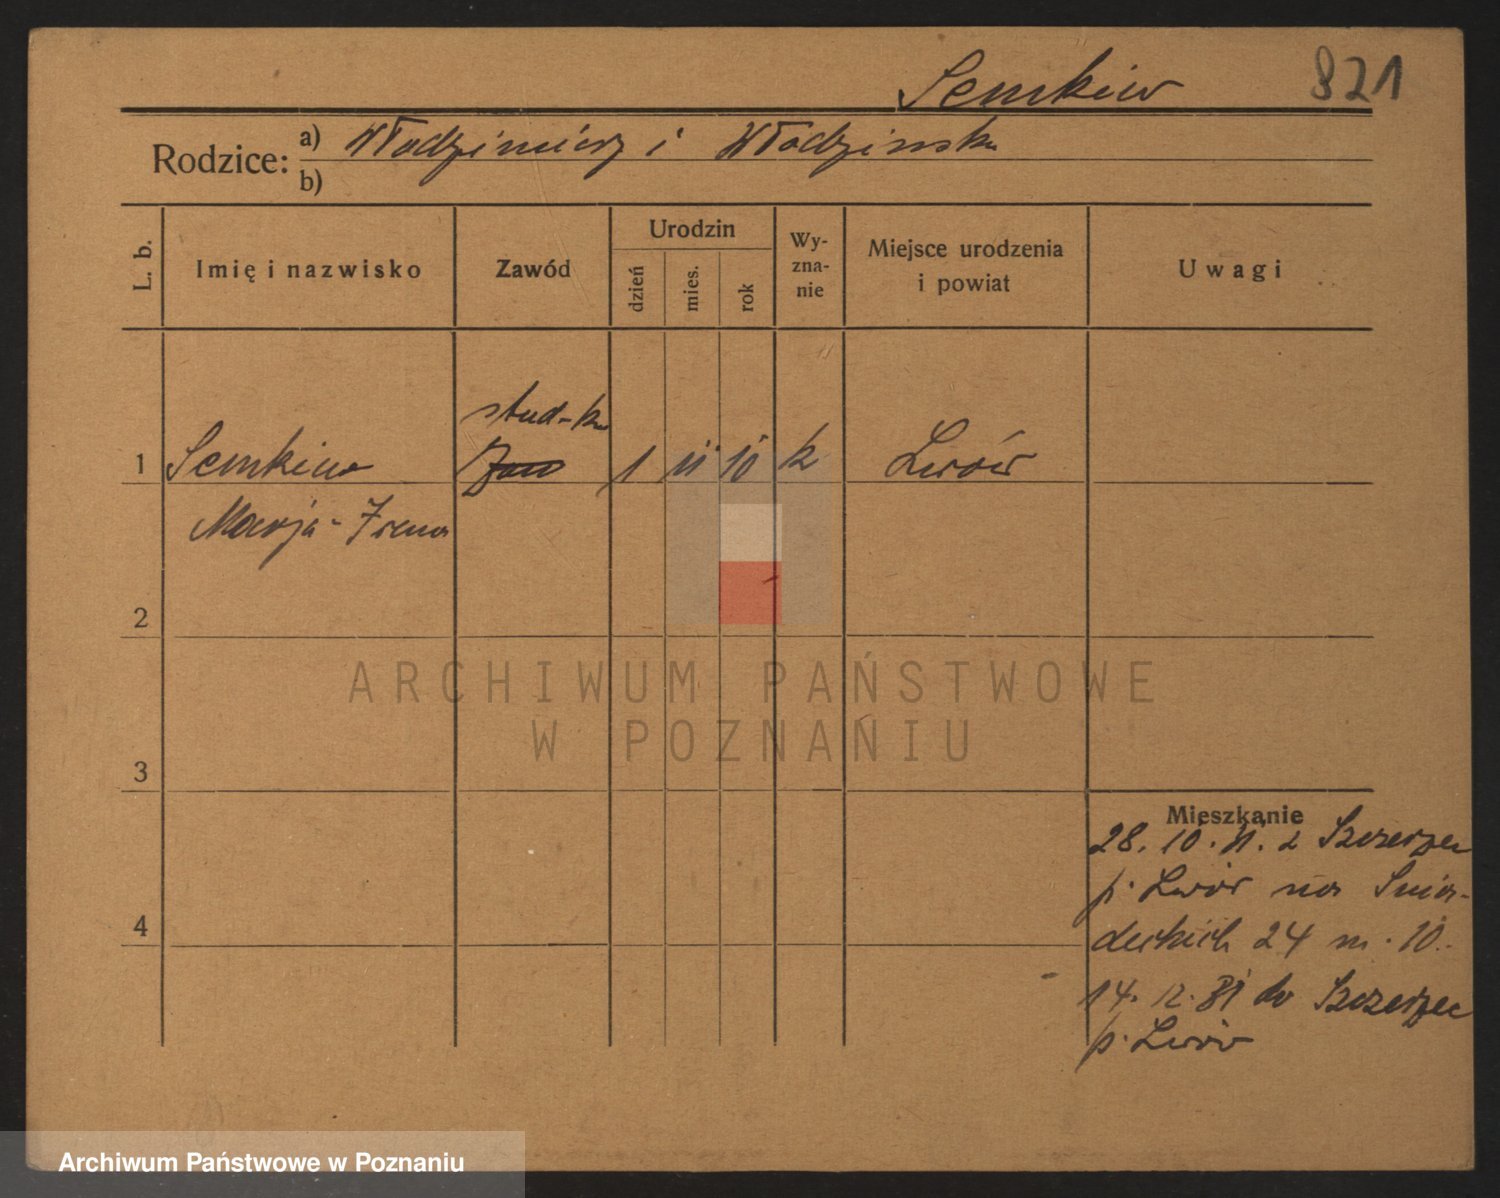 Semkiw 821
Rodzice: a) Włodzimierz i Włodzimska
b)
L. b. Imię i nazwisko Zawód Urodzin dzień mies. rok Wy-zna-nie Miejsce urodzenia i powiat Uwagi
stud-ka
1 Semkiw 1 11 10 k Lwów
Marja-Irena
2
3
Mieszkanie
28. 10. z Szczerzec
p. Lwów na Śnia-
deckich 24 m. 10.
4
14. 12. 31 do Szczerzec
p. Lwów
ARCHIWUM PAŃSTWOWE
W POZNANIU
Archiwum Państwowe w Poznaniu